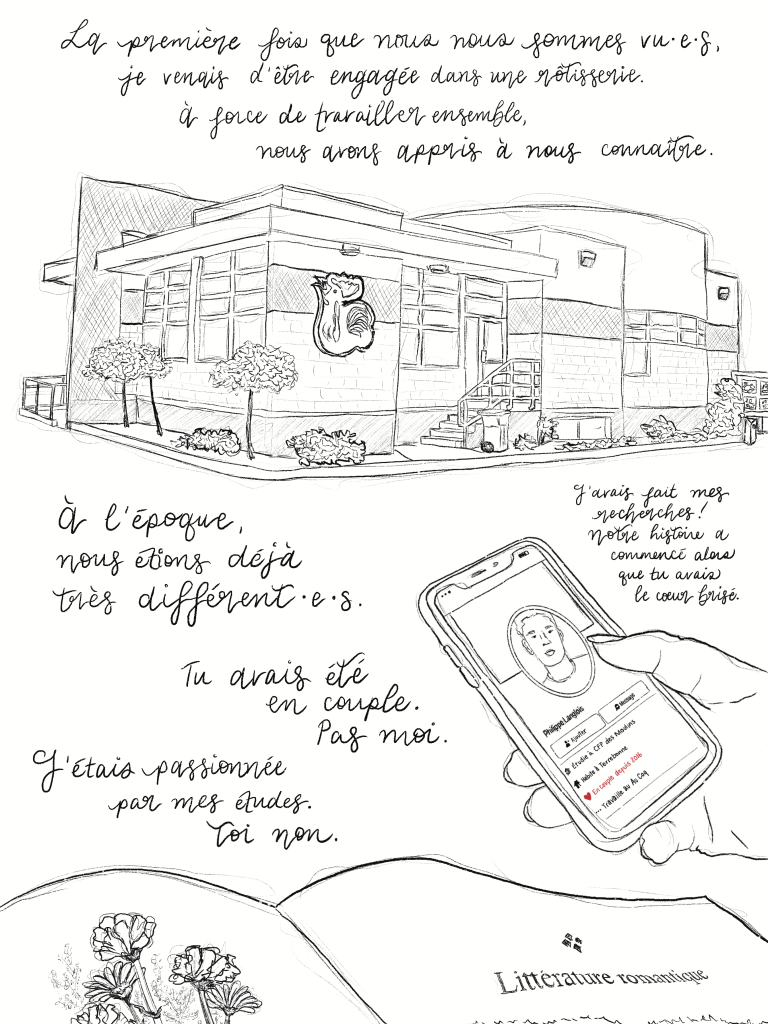 La première fois que nous nous sommes vu·e·s,
je venais d'être engagée dans une rôtisserie.
À force de travailler ensemble,
nous avons appris à nous connaître.
À l'époque,
nous étions déjà
très différent·e·s.
J'avais fait mes
recherches!
Notre histoire a
commencé alors
que tu avais
le cœur brisé.
Philippe Langlois
Ajouter
Message
Étudie à CFP des Moulins
Habite à Terrebonne
En couple depuis 2016
Travaille au As Coq
Tu avais été
en couple.
Pas moi.
J'étais passionnée
par mes études.
Toi non.
Littérature romantique